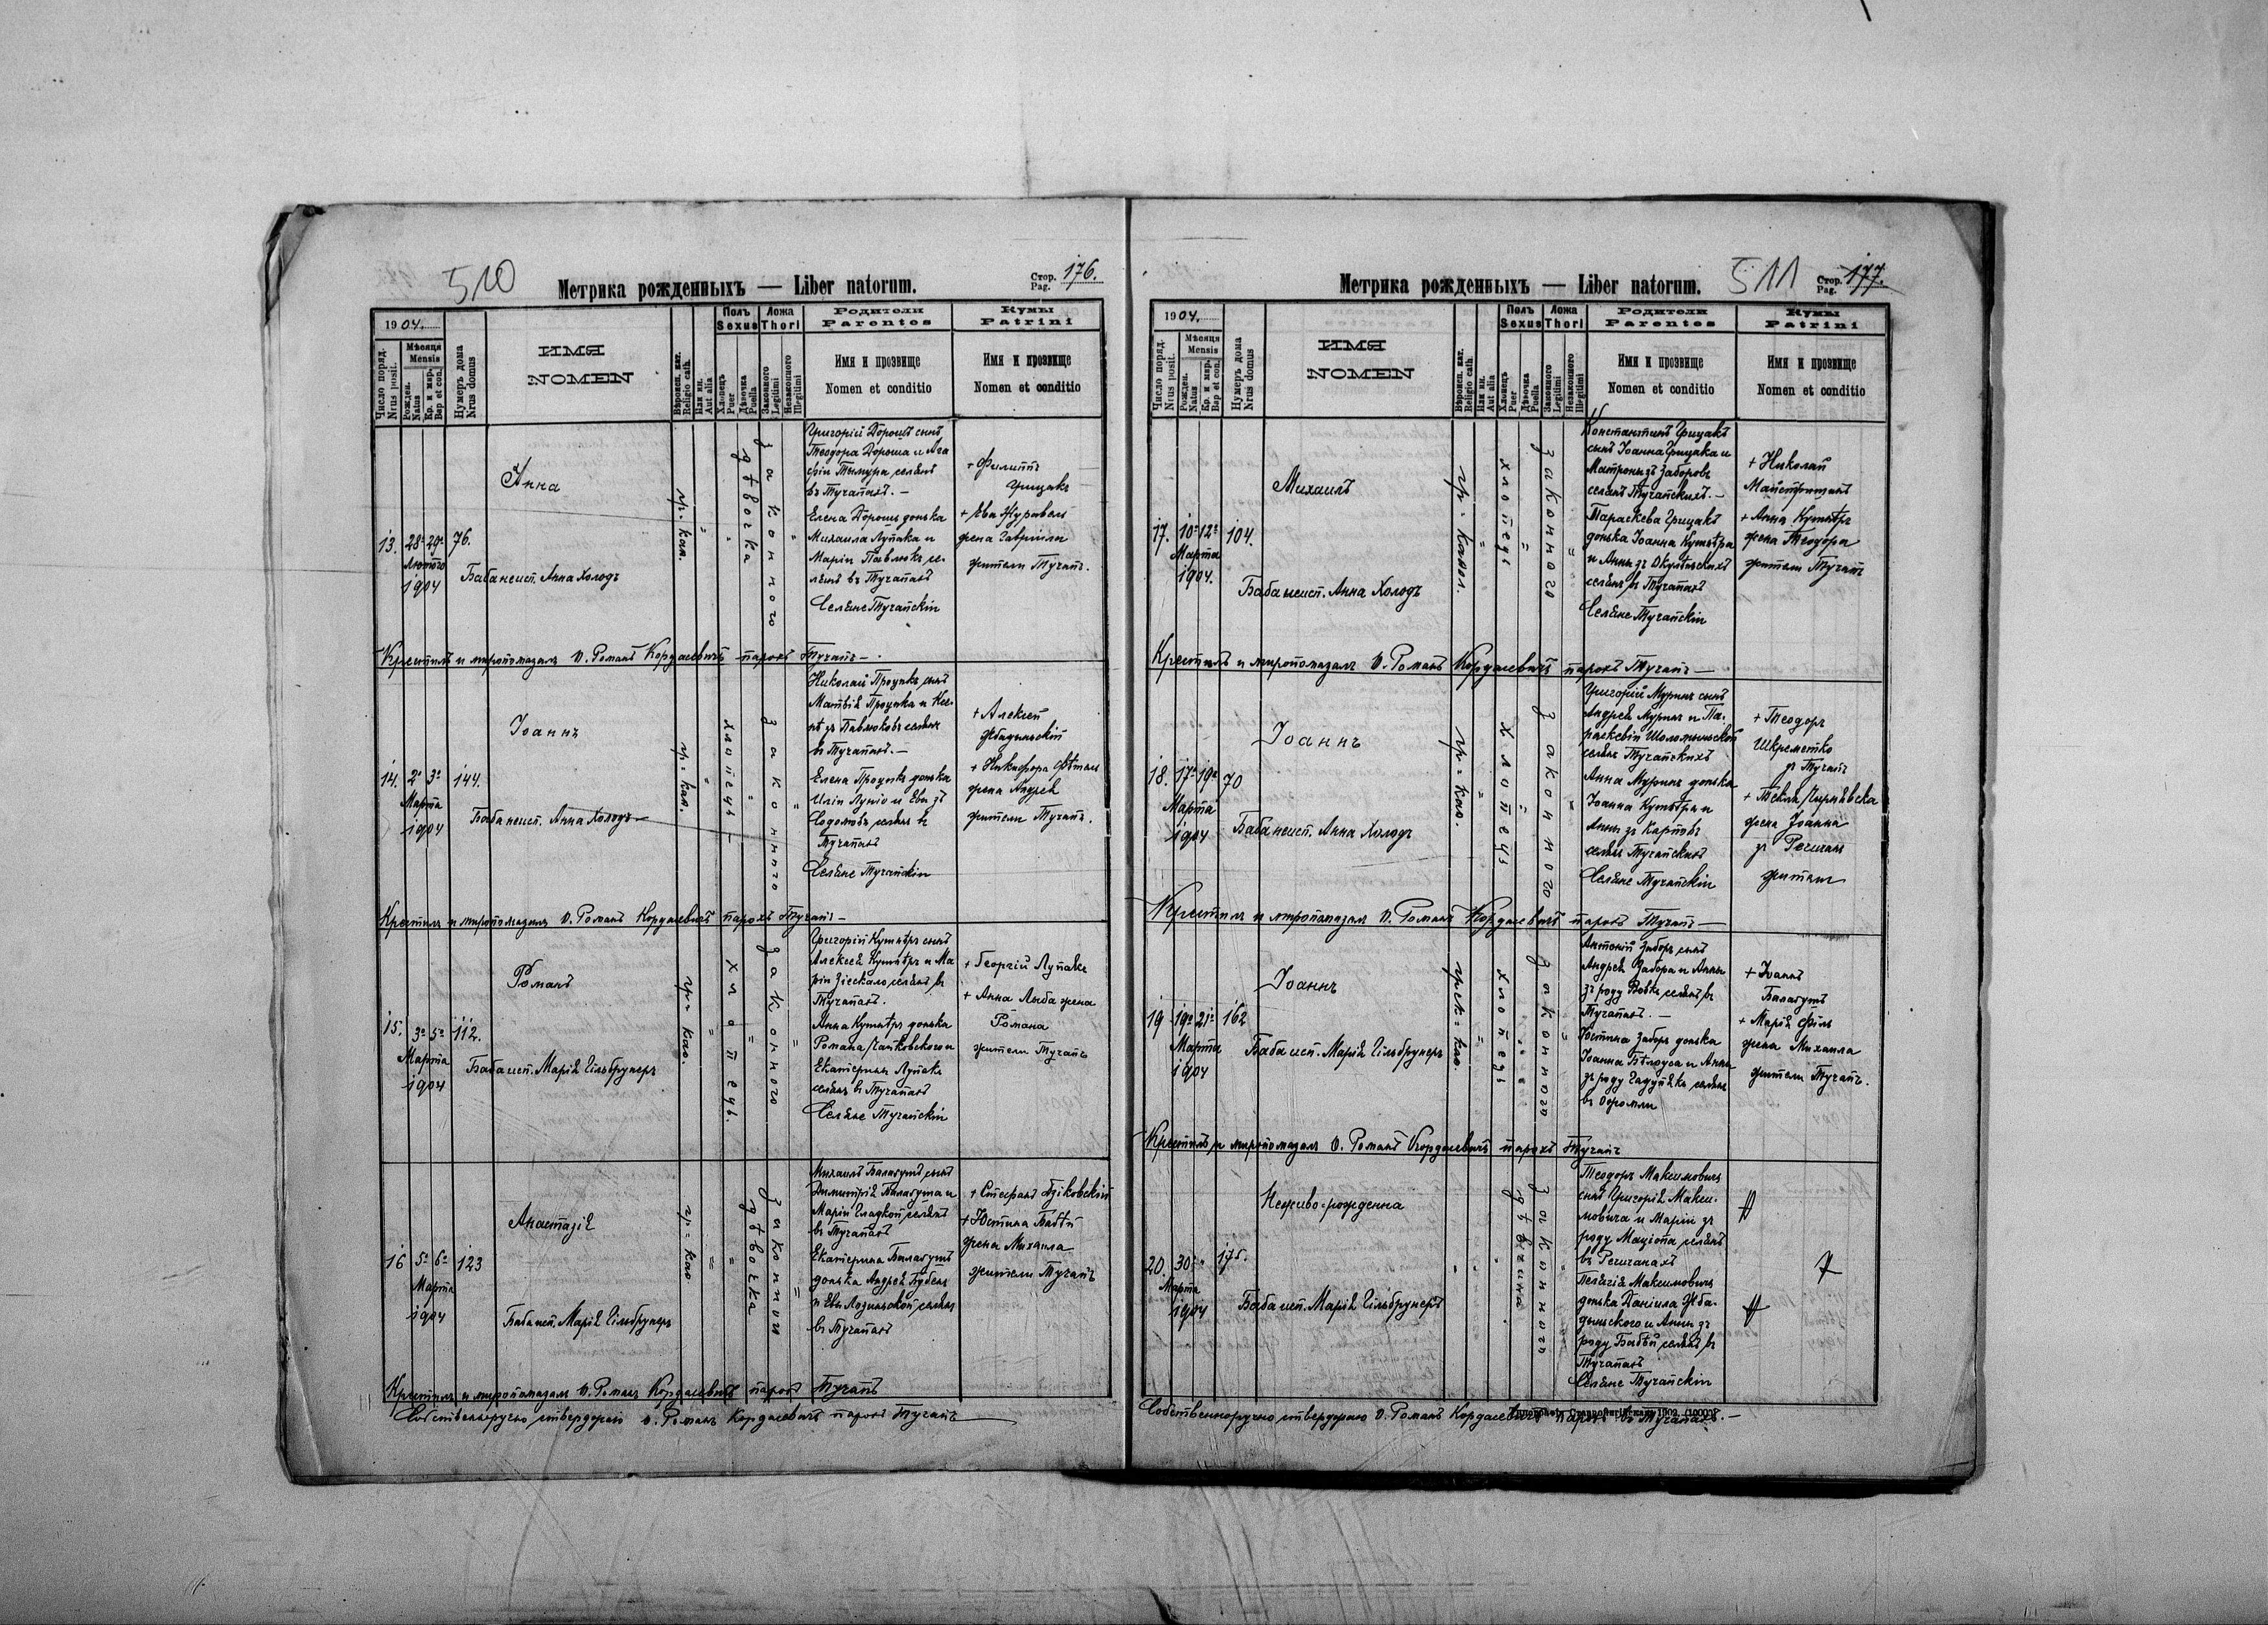 510
Метрика рожденныхъ — Liber natorum.
Стор. 176.
Pag.
1904.
Число поряд.
Nrus posit.
Мѣсяця
Mensis
Рожден.
Natus
Кр. и мир.
Bap et con.
Нумеръ дома
Nrus domus
ИМЯ
NOMEN
Вѣроисп. кат.
Religio cath.
Или ин.
Aut alia
Полъ
Sexus
Хлопецъ
Puer
Дѣвочка
Puella
Ложа
Thori
Законного
Legitimi
Незаконного
Illegitimi
Родители
Parentes
Имя и прозвище
Nomen et conditio
Кумы
Patrini
Имя и прозвище
Nomen et conditio
13. 28. 29. 76.
Лютого
1904
Анна
Баба неисп. Анна Холодъ
гр. кат.
дѣвочка
законного
Григорій Дорошъ сынъ
Теодора Дороша и Ага
фіи Тымура, селянъ
въ Тучапахъ. —
Елена Дорошъ донька
Михаила Лупака и
Маріи Павлюкъ се-
лянъ въ Тучапахъ
Селяне Тучапскіи
+ Филиппъ
Грицакъ
+ Ева Журавель
жена Гавріила
жители Тучапъ.
Крестилъ и миропомазалъ О. Романъ Кордасевичъ парохъ Тучапъ —
14. 2. 3. 144.
Марта
1904
Іоаннъ
Баба неисп. Анна Холодъ —
гр. кат.
хлопецъ —
законного
Николай Процикъ сынъ
Матвѣя Процика и
зъ Павлюковъ селянъ
въ Тучапахъ. —
Елена Процикъ донька
Иліи Луціо и Евы зъ
селянъ въ
Тучапахъ
Селяне Тучапскіи
+ Алексій
Жбадынскій
+ Никифора
жена Андрея
жители Тучапъ.
Крестилъ и миропомазалъ О. Романъ Кордасевичъ парохъ Тучапъ —
15. 3. 5. 112.
Марта
1904
Романъ
Баба исп. Марія Гильбрунеръ
гр. кат.
хлопецъ.
законного
Григорій Куметръ сынъ
Алексея Куметръ и Ма
ріи селянъ въ
Тучапахъ.
Анна Куметръ донька
Романа Чайковского и
Екатерины Лупакъ
селянъ въ Тучапахъ
Селяне Тучапскіи
+ Георгій Лупакъ
+ Анна Лыба жена
Романа
жители Тучапъ
16 5. 6. 123
Марта
1904
Анастазія
Баба исп. Марія Гильбрунеръ
гр. кат
дѣвочка
законного
Михаилъ Балагушъ сынъ
Димитрія Балагуша и
Маріи Гладкой селянъ
въ Тучапахъ
Екатерина Балагушъ
донька Андрея Бубенъ
и Евы Лозинской селянъ
въ Тучапахъ
+ Стефанъ
+ Юстина Бабѣй
жена Михаила
жители Тучапъ
Крестилъ и миропомазалъ О. Романъ Кордасевичъ парохъ Тучапъ
Собственоручно утверждаю О. Романъ Кордасевичъ парохъ Тучапъ
Метрика рожденныхъ — Liber natorum.
511
Стор. 177.
Pag.
1904.
Число поряд.
Nrus posit.
Мѣсяця
Mensis
Рожден.
Natus
Кр. и мир.
Bap et con.
Нумеръ дома
Nrus domus
ИМЯ
NOMEN
Вѣроисп. кат.
Religio cath.
Или ин.
Aut alia
Полъ
Sexus
Хлопецъ
Puer
Дѣвочка
Puella
Ложа
Thori
Законного
Legitimi
Незаконного
Illegitimi
Родители
Parentes
Имя и прозвище
Nomen et conditio
Кумы
Patrini
Имя и прозвище
Nomen et conditio
17. 10. 12. 104.
Марта
1904.
Михаилъ
Баба неисп. Анна Холодъ
гр. катол.
хлопецъ
законного
Константинъ Грицакъ
сынъ Іоанна Грицака и
Матроны зъ Заборовъ
селянъ Тучапскихъ. —
Параскева Грицакъ
донька Іоанна Куметра
и Анны зъ
селянъ въ Тучапахъ
Селяне Тучапскіи
+ Николай
Майстришинъ
+ Анна Куметръ
жена Теодора
жители Тучапъ
Крестилъ и миропомазалъ О. Романъ Кордасевичъ парохъ Тучапъ —
18. 17. 19. 70
Марта
1904
Іоаннъ
Баба неисп. Анна Холодъ
гр. кат.
хлопецъ
законного
Григорій Муринъ сынъ
Андрея Муринъ и Па-
раскевіи Шоломыньской
селянъ Тучапскихъ
Анна Муринъ донька
Іоанна Куметра и
Анны зъ Карповъ
селянъ Тучапскихъ
Селяне Тучапскіи
+ Теодоръ
Шкреметко
зъ Тучапъ
+ Текля
жена Іоанна
зъ Речичанъ
жители
Крестилъ и миропомазалъ О. Романъ Кордасевичъ парохъ Тучапъ —
19 19. 21. 162
Марта
1904
Іоаннъ
Баба исп. Марія Гильбрунеръ
грек. кат.
хлопецъ
законного
Антоній Заборъ сынъ
Андрея Забора и Анны
зъ роду Вовкъ селянъ въ
Тучапахъ. —
Юстина Заборъ донька
Іоанна Бѣлоуса и Анны
зъ роду селянъ
въ
+ Іоаннъ
Балагушъ
+ Марія Филь
жена Михаила
жители Тучапъ.
Крестилъ и миропомазалъ О. Романъ Кордасевичъ парохъ Тучапъ
20. 30. 175.
Марта
1904
Неживо-рожденна
Баба исп. Марія Гильбрунеръ
дѣвчина
законного
Теодоръ Максимовичъ
сынъ Григорія Макси-
мовича и Маріи зъ
роду Маціопа селянъ
въ Речичанахъ
Пелагія Максимовичъ
донька Даніила Жба-
дынского и Анны зъ
роду Бабѣй селянъ въ
Тучапахъ
Селяне Тучапскіи
Собственноручно утверждаю О. Романъ Кордасевичъ парохъ въ Тучапахъ. —